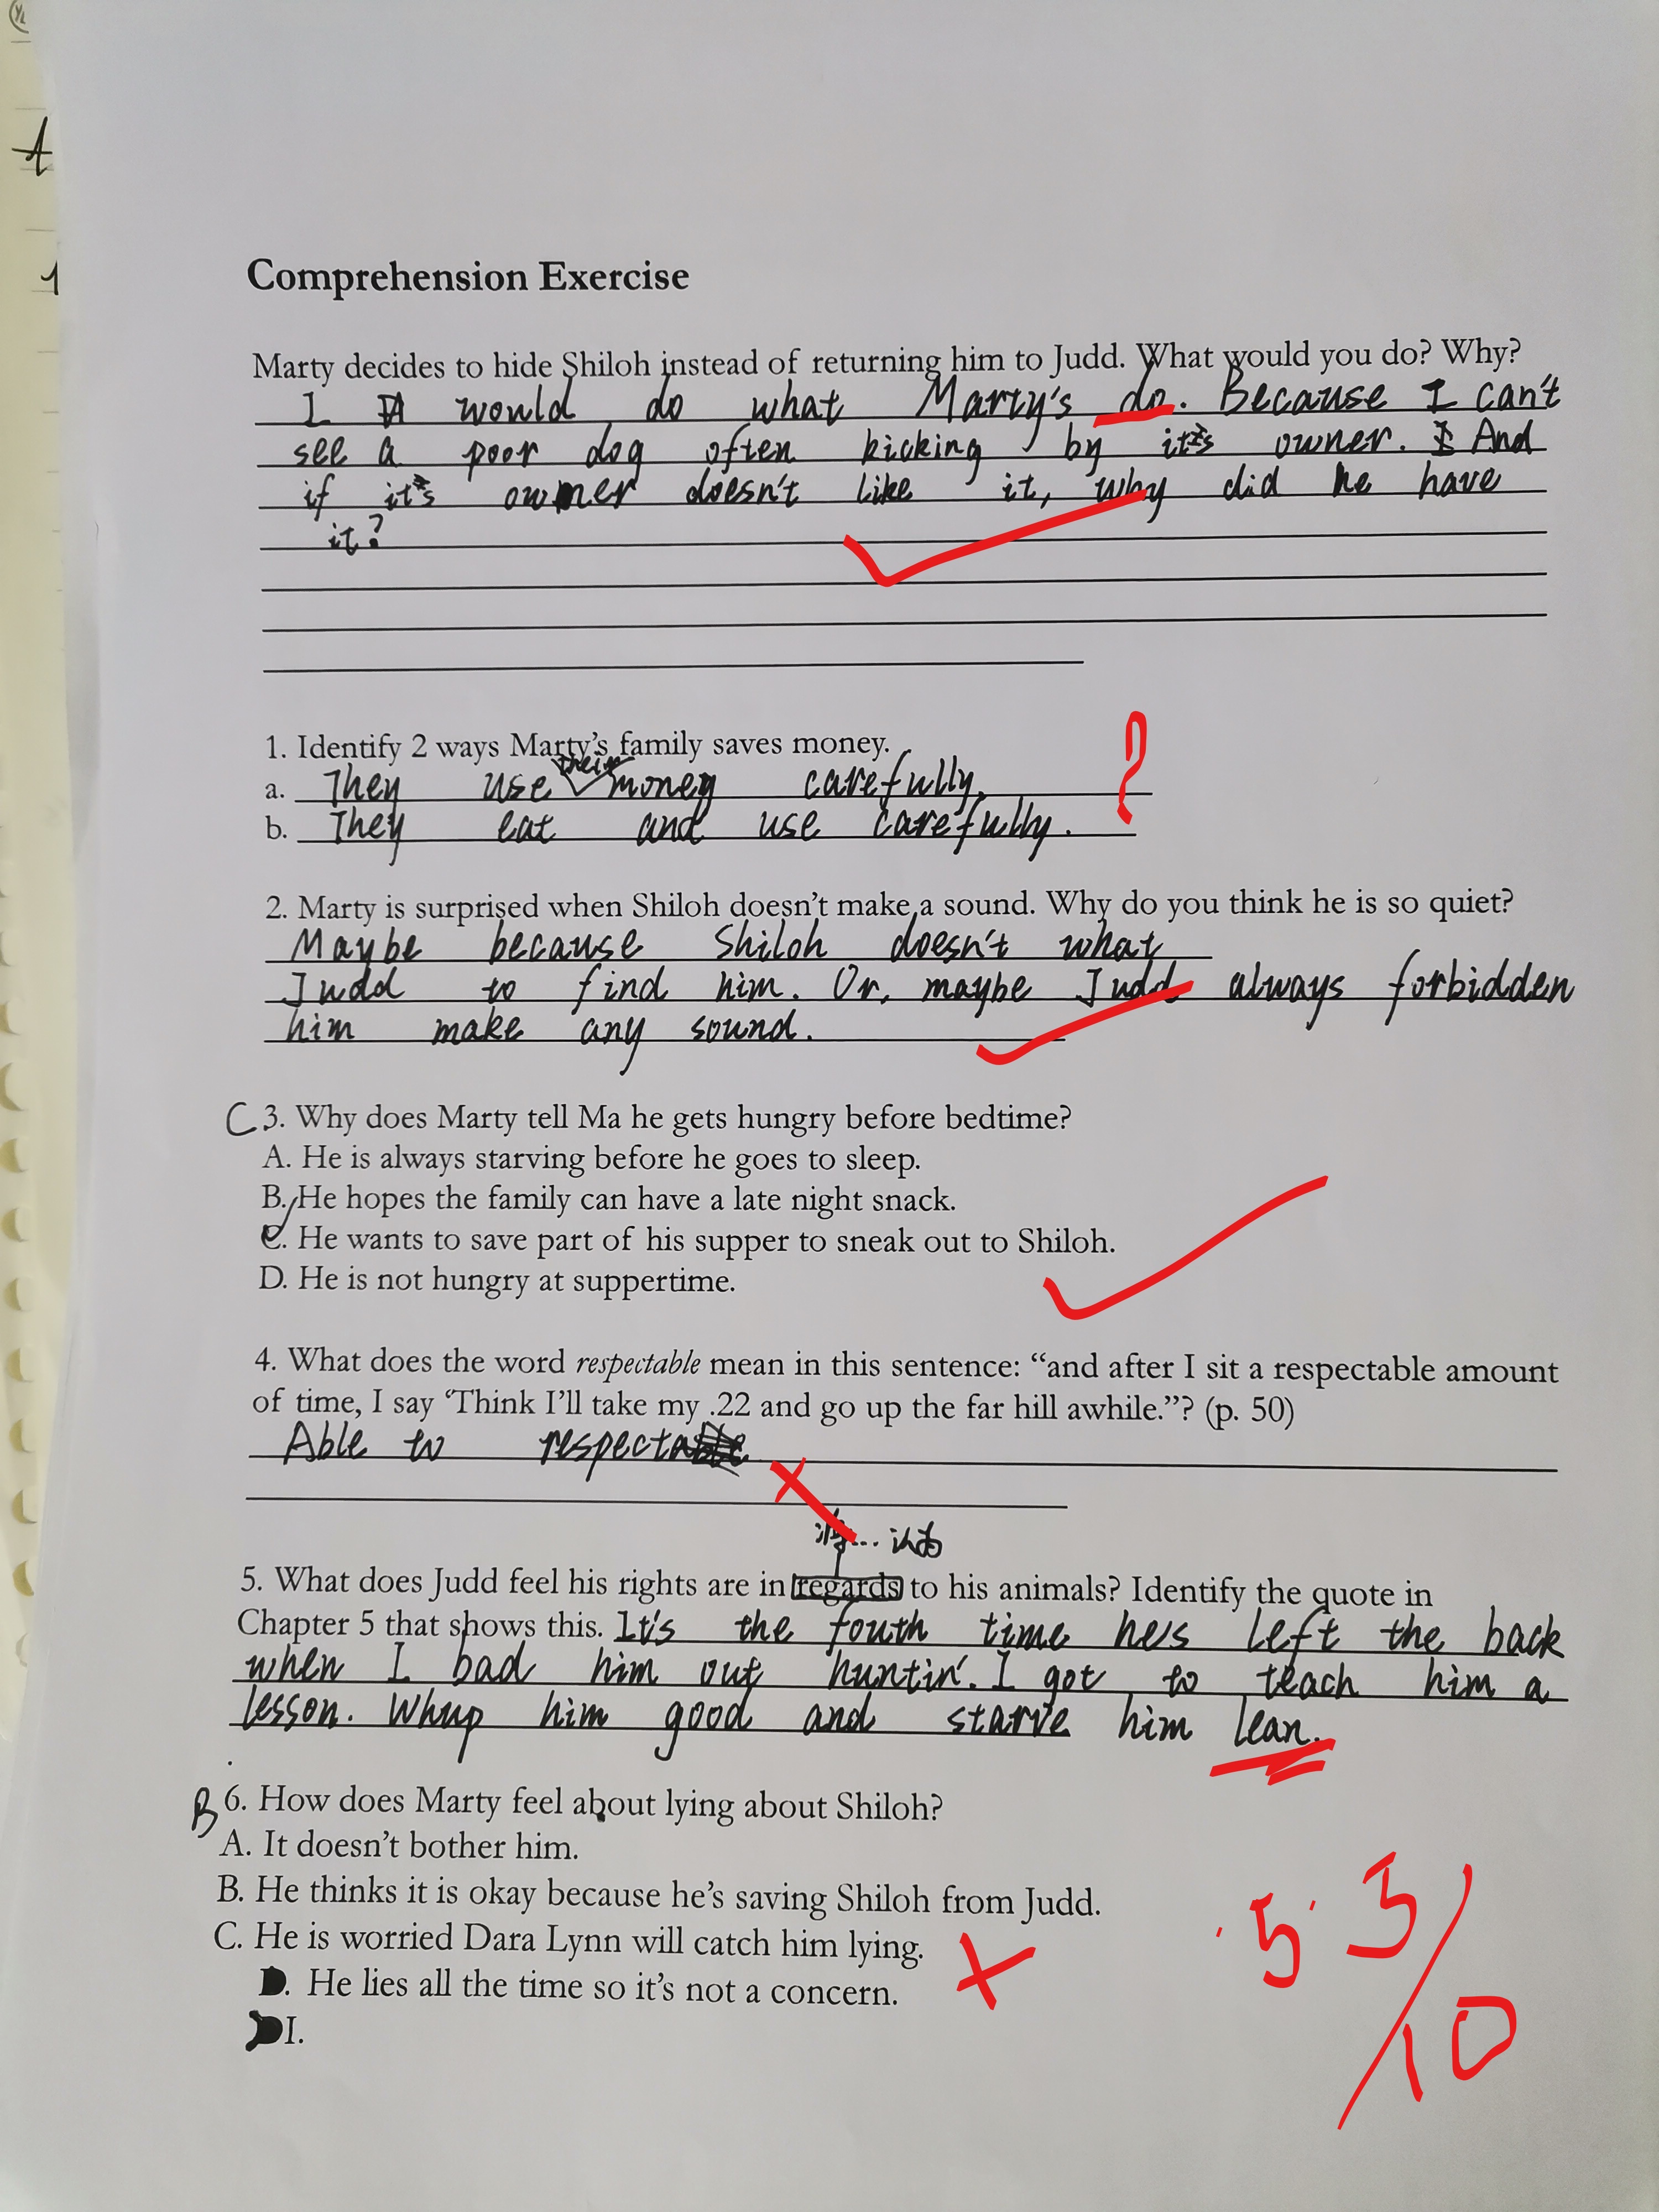 A
1
Comprehension Exercise
Marty decides to hide Shiloh instead of returning him to Judd. What would you do? Why?
I would do what Marty's do. Because I can't
see a poor dog often kicking by its owner. And
if its owner doesn't like it, why did he have
it?
1. Identify 2 ways Marty's family saves money.
a. They use their money carefully.
b. They eat and use carefully.
?
2. Marty is surprised when Shiloh doesn't make a sound. Why do you think he is so quiet?
Maybe because Shiloh doesn't what
Judd to find him. Or, maybe Judd always forbidden
him make any sound.
C 3. Why does Marty tell Ma he gets hungry before bedtime?
A. He is always starving before he goes to sleep.
B. He hopes the family can have a late night snack.
C. He wants to save part of his supper to sneak out to Shiloh.
D. He is not hungry at suppertime.
4. What does the word respectable mean in this sentence: “and after I sit a respectable amount
of time, I say ‘Think I’ll take my .22 and go up the far hill awhile.”? (p. 50)
Able to respect
将... 认为
5. What does Judd feel his rights are in regards to his animals? Identify the quote in
Chapter 5 that shows this. It's the fouth time he's left the back
when I bad him out huntin'. I got to teach him a
lesson. Whup him good and starve him lean.
B 6. How does Marty feel about lying about Shiloh?
A. It doesn't bother him.
B. He thinks it is okay because he's saving Shiloh from Judd.
C. He is worried Dara Lynn will catch him lying.
D. He lies all the time so it's not a concern.
I.
5.3/10